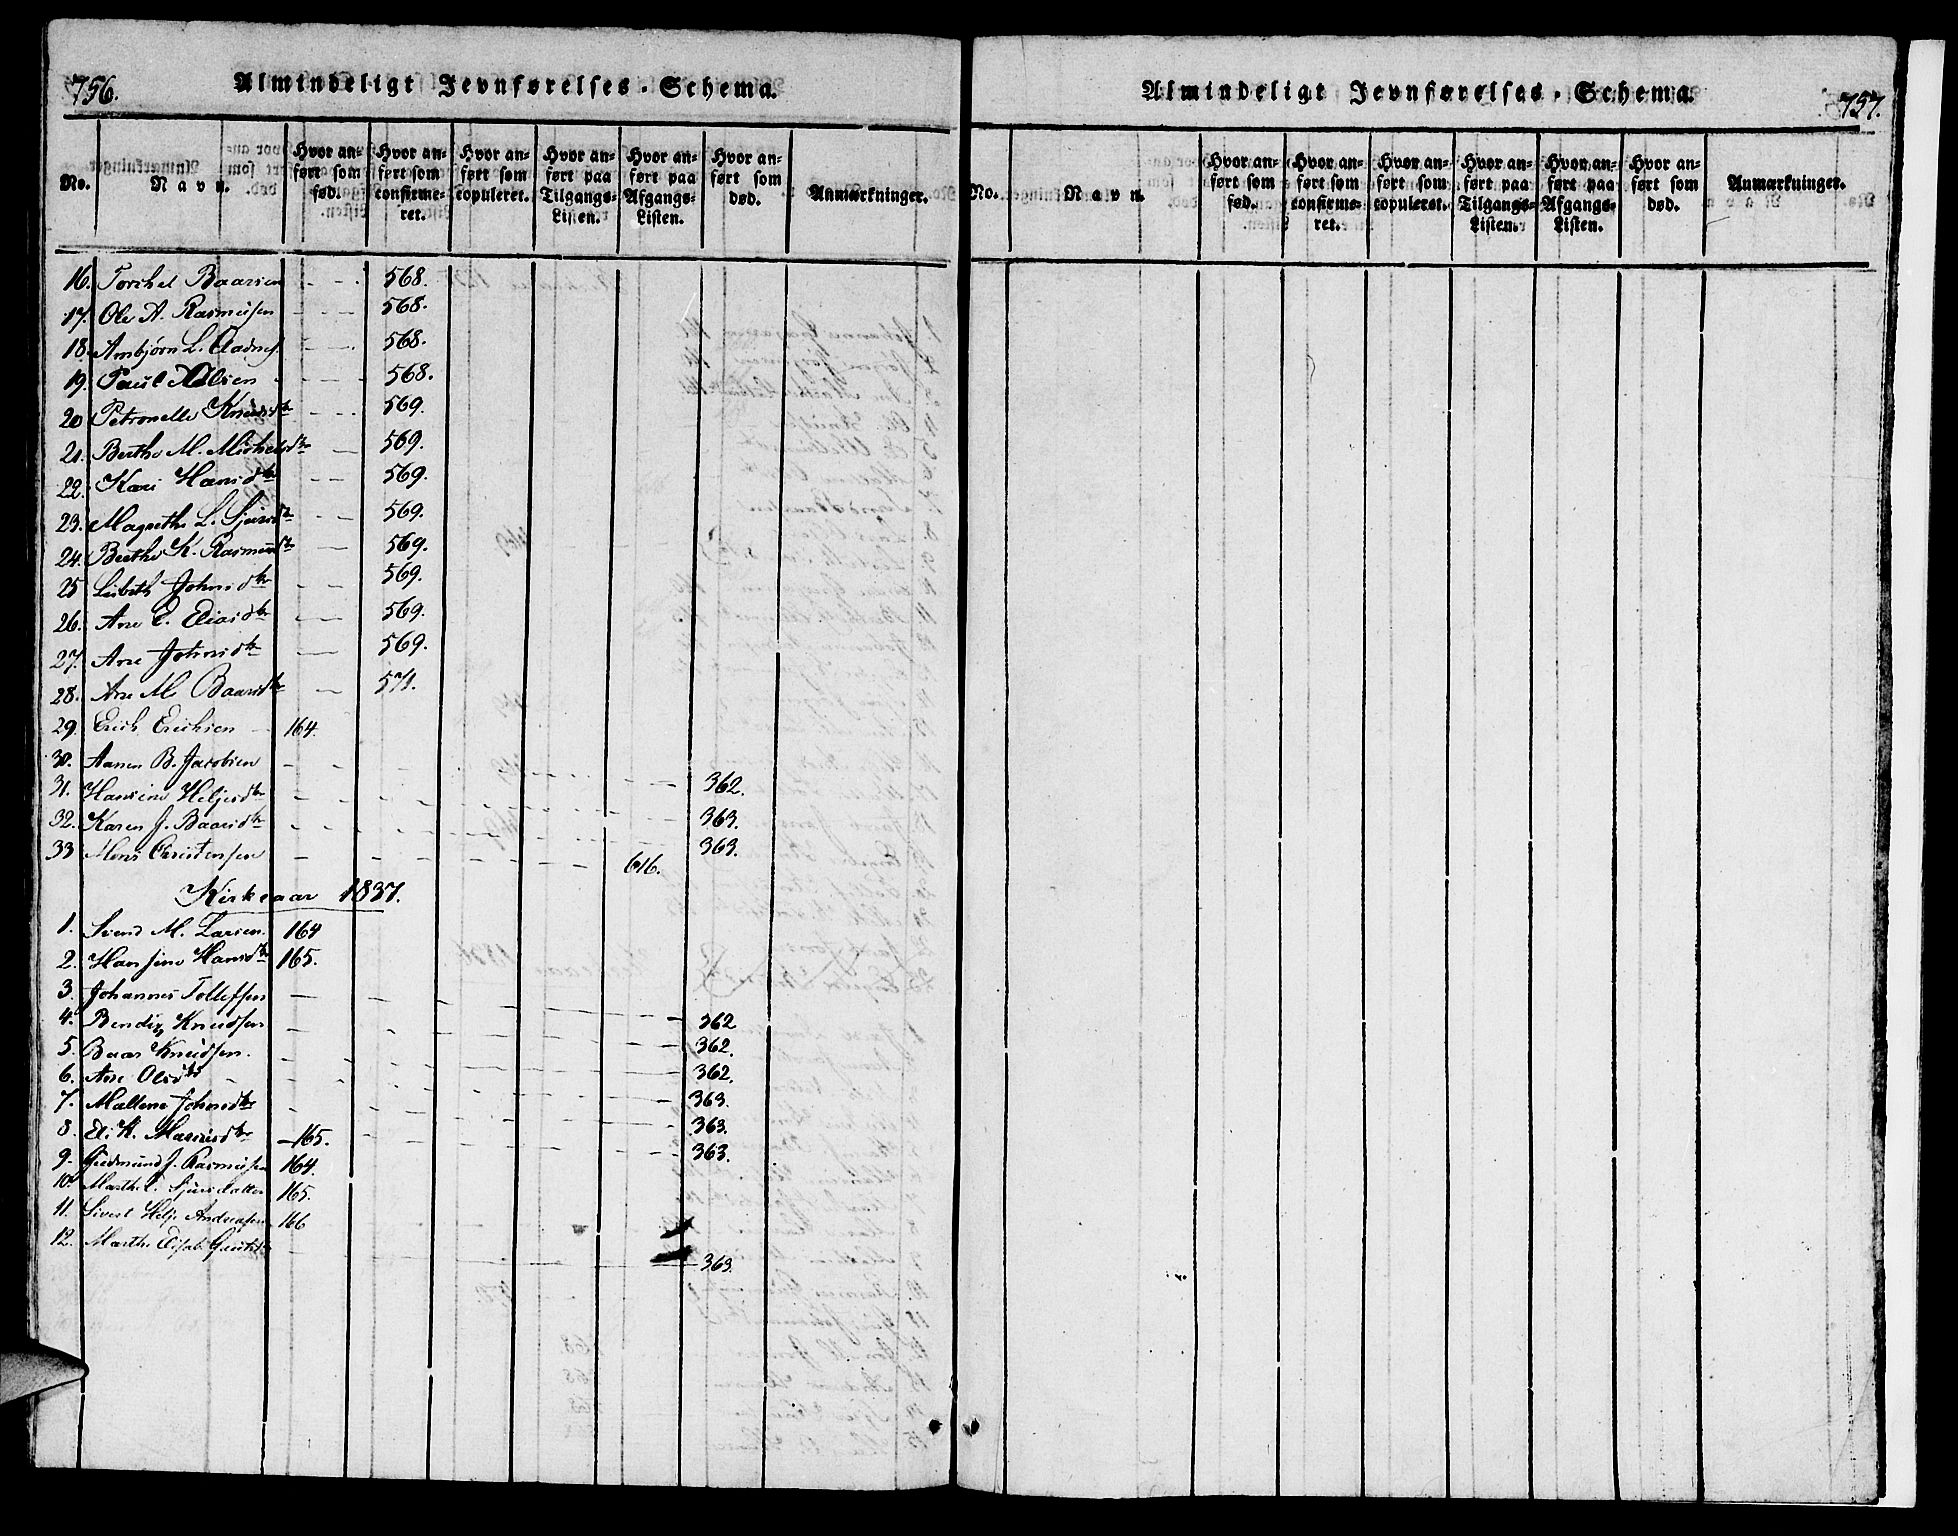 756.
Almindeligt Jevnførelses-Schema.
No.
Navn.
Hvor anført som fød.
Hvor anført som confirmeret.
Hvor anført som copuleret.
Hvor anført paa Tilgangs-Listen.
Hvor anført paa Afgangs-Listen.
Hvor anført som død.
Anmærkninger.
16. Torchel Baarsen - - - 568.
17. Ole A. Rasmussen - - - 568.
18. Ambjørn L. Aadnes. - - 568.
19. Paul Nilsen - - - 568.
20 Petronelle Knudsdtr - - 569.
21. Berthe M. Michelsdtr - 569.
22. Kari Hansdtr - - 569.
23. Magrethe L. Sjursdtr - - 569.
24. Berthe K. Rasmusdtr - 569.
25 Lisbeth Johnsdtr - - 569.
26. Ane E. Eliasdtr - - 569.
27. Ane Johnsdtr - 569.
28. Ane M. Baarsdtr - 571.
29. Erich Erichsen - 164.
30. Aanen B. Jacobsen - - - 362.
31. Hansine Heljesdtr - - - 363.
32. Karen J. Baarsdtr - - - 363.
33 Mons Christensen - - - 616.
Kirkeaar 1837.
1. Svend M. Larsen. 164
2. Hansine Hansdtr 165.
3. Johannes Tollefsen - - - 362
4. Bendix Knudsen - - - 362.
5. Baar Knudsen. - - - 362.
6. Ane Olsdtr - - - 363.
7. Maltene Johnsdtr - - - 363.
8. El. K. 165. 363.
9. Gudmund J. Rasmussen 164.
10. Marthe Sjursdatter 165.
11. Sivert Helje Andreassen 166
12. Marthe Elisab. - - - 363.
Almindeligt Jevnførelses-Schema.
757.
No.
Navn.
Hvor anført som fød.
Hvor anført som confirmeret.
Hvor anført som copuleret.
Hvor anført paa Tilgangs-Listen.
Hvor anført paa Afgangs-Listen.
Hvor anført som død.
Anmærkninger.